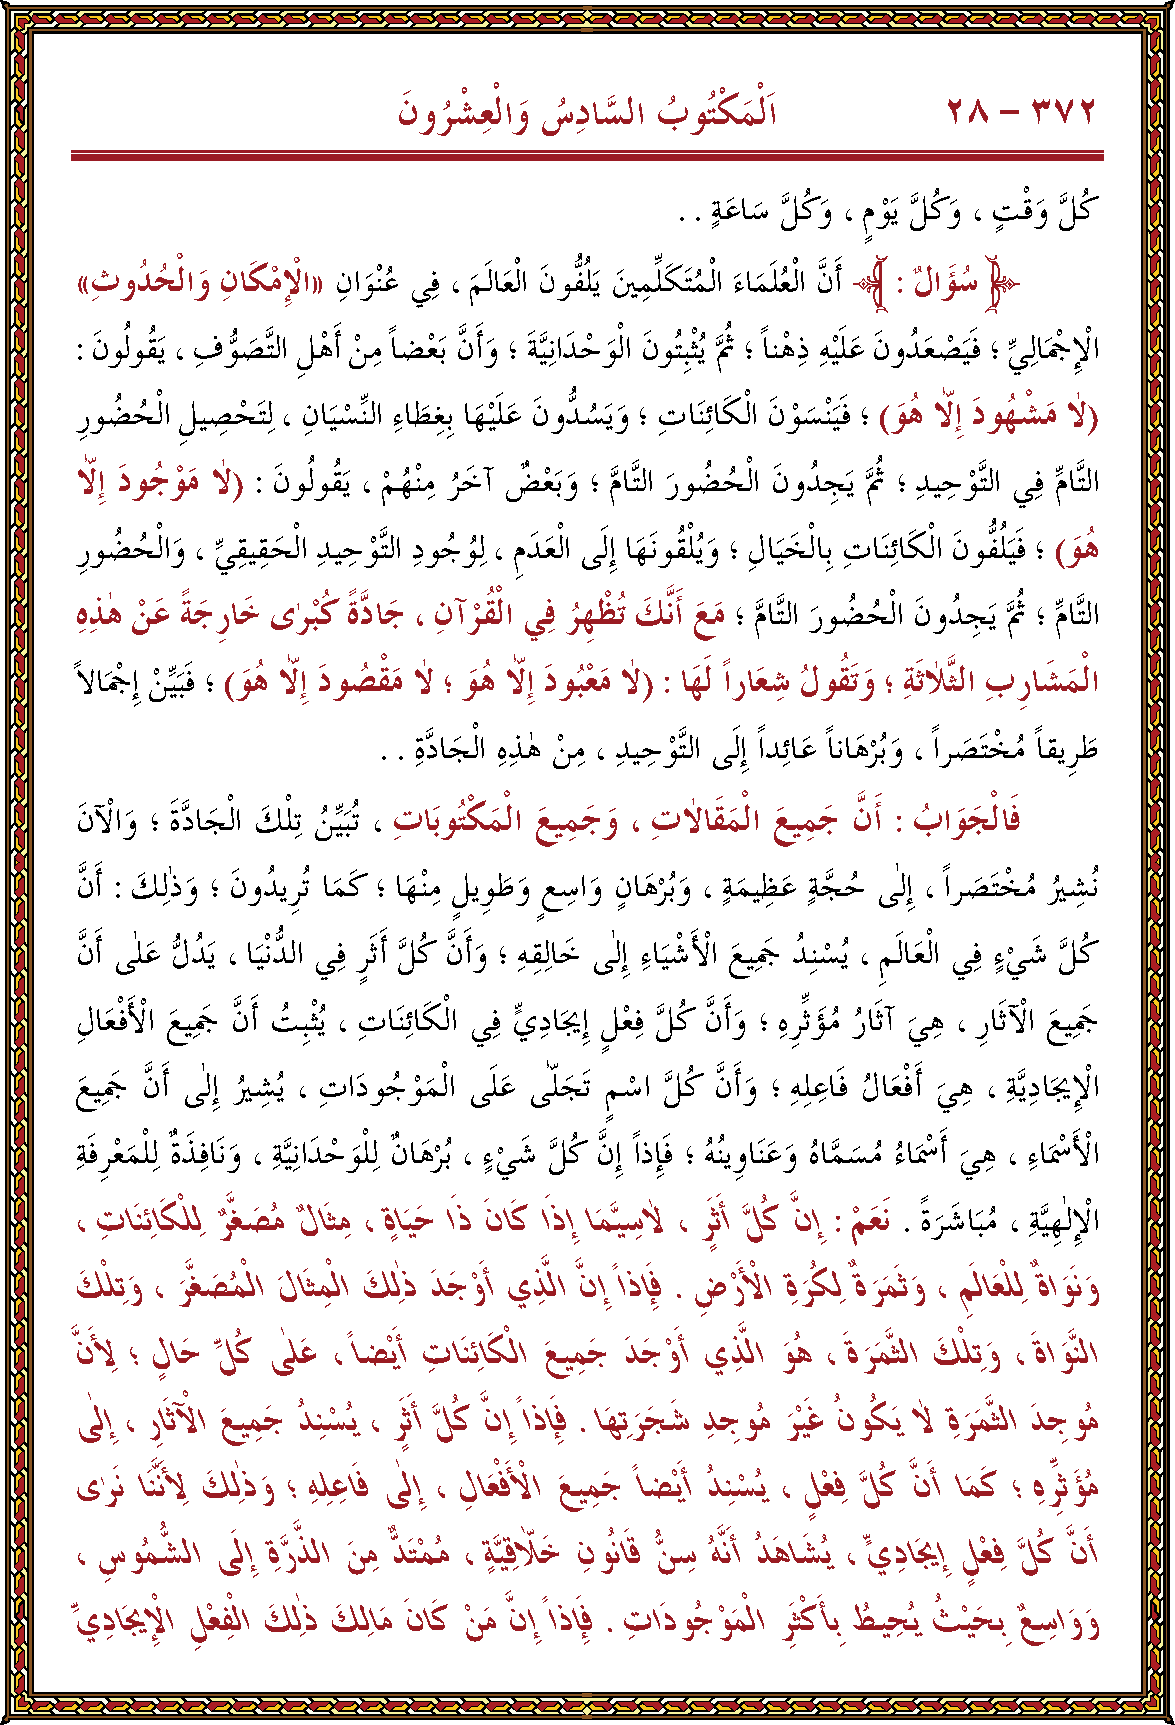 ٣٧٢ – ٢٨ اَلْمَكْتُوبُ السَّادِسُ وَالْعِشْرُونَ
كُلَّ وَقْتٍ ، وَكُلَّ يَوْمٍ ، وَكُلَّ سَاعَةٍ . .
﴿ سُؤَالٌ : ﴾ أَنَّ الْعُلَمَاءَ الْمُتَكَلِّمِينَ يَلُفُّونَ الْعَالَمَ ، فِي عُنْوَانِ «الْإِمْكَانِ وَالْحُدُوثِ»
الْإِجْمَالِيِّ ؛ فَيَصْعَدُونَ عَلَيْهِ ذِهْناً ؛ ثُمَّ يُثْبِتُونَ الْوَحْدَانِيَّةَ ؛ وَأَنَّ بَعْضاً مِنْ أَهْلِ التَّصَوُّفِ ، يَقُولُونَ :
(لٰا مَشْهُودَ إِلّٰا هُوَ) ؛ فَيَنْسَوْنَ الْكَائِنَاتِ ؛ وَيَسُدُّونَ عَلَيْهَا بِغِطَاءِ النِّسْيَانِ ، لِتَحْصِيلِ الْحُضُورِ
التَّامِّ فِي التَّوْحِيدِ ؛ ثُمَّ يَجِدُونَ الْحُضُورَ التَّامَّ ؛ وَبَعْضٌ آخَرُ مِنْهُمْ ، يَقُولُونَ : (لٰا مَوْجُودَ إِلّٰا
هُوَ) ؛ فَيَلُفُّونَ الْكَائِنَاتِ بِالْخَيَالِ ؛ وَيُلْقُونَهَا إِلَى الْعَدَمِ ، لِوُجُودِ التَّوْحِيدِ الْحَقِيقِيِّ ، وَالْحُضُورِ
التَّامِّ ؛ ثُمَّ يَجِدُونَ الْحُضُورَ التَّامَّ ؛ مَعَ أَنَّكَ تُظْهِرُ فِي الْقُرْآنِ ، جَادَّةً كُبْرٰى خَارِجَةً عَنْ هٰذِهِ
الْمَشَارِبِ الثَّلٰاثَةِ ؛ وَتَقُولُ شِعَاراً لَهَا : (لٰا مَعْبُودَ إِلّٰا هُوَ ؛ لٰا مَقْصُودَ إِلّٰا هُوَ) ؛ فَبَيِّنْ إِجْمَالاً
طَرِيقاً مُخْتَصَراً ، وَبُرْهَاناً عَائِداً إِلَى التَّوْحِيدِ ، مِنْ هٰذِهِ الْجَادَّةِ . .
فَالْجَوَابُ : أَنَّ جَمِيعَ الْمَقَالٰاتِ ، وَجَمِيعَ الْمَكْتُوبَاتِ ، تُبَيِّنُ تِلْكَ الْجَادَّةَ ؛ وَالْآنَ
نُشِيرُ مُخْتَصَراً ، إِلٰى حُجَّةٍ عَظِيمَةٍ ، وَبُرْهَانٍ وَاسِعٍ وَطَوِيلٍ مِنْهَا ؛ كَمَا تُرِيدُونَ ؛ وَذٰلِكَ : أَنَّ
كُلَّ شَيْءٍ فِي الْعَالَمِ ، يُسْنِدُ جَمِيعَ الْأَشْيَاءِ إِلٰى خَالِقِهِ ؛ وَأَنَّ كُلَّ أَثَرٍ فِي الدُّنْيَا ، يَدُلُّ عَلٰى أَنَّ
جَمِيعَ الْآثَارِ ، هِيَ آثَارُ مُؤَثِّرِهِ ؛ وَأَنَّ كُلَّ فِعْلٍ إِيجَادِيٍّ فِي الْكَائِنَاتِ ، يُثْبِتُ أَنَّ جَمِيعَ الْأَفْعَالِ
الْإِيجَادِيَّةِ ، هِيَ أَفْعَالُ فَاعِلِهِ ؛ وَأَنَّ كُلَّ اسْمٍ تَجَلّٰى عَلَى الْمَوْجُودَاتِ ، يُشِيرُ إِلٰى أَنَّ جَمِيعَ
الْأَسْمَاءِ ، هِيَ أَسْمَاءُ مُسَمَّاهُ وَعَنَاوِينُهُ ؛ فَإِذاً إِنَّ كُلَّ شَيْءٍ ، بُرْهَانٌ لِلْوَحْدَانِيَّةِ ، وَنَافِذَةٌ لِلْمَعْرِفَةِ
الْإِلٰهِيَّةِ ، مُبَاشَرَةً . نَعَمْ : إِنَّ كُلَّ أَثَرٍ ، لٰاسِيَّمَا إِذَا كَانَ ذَا حَيَاةٍ ، مِثَالٌ مُصَغَّرٌ لِلْكَائِنَاتِ ،
وَنَوَاةٌ لِلْعَالَمِ ، وَثَمَرَةٌ لِكُرَةِ الْأَرْضِ . فَإِذاً إِنَّ الَّذِي أَوْجَدَ ذٰلِكَ الْمِثَالَ الْمُصَغَّرَ ، وَتِلْكَ
النَّوَاةَ ، وَتِلْكَ الثَّمَرَةَ ، هُوَ الَّذِي أَوْجَدَ جَمِيعَ الْكَائِنَاتِ أَيْضاً ، عَلٰى كُلِّ حَالٍ ؛ لِأَنَّ
مُوجِدَ الثَّمَرَةِ لٰا يَكُونُ غَيْرَ مُوجِدِ شَجَرَتِهَا . فَإِذاً إِنَّ كُلَّ أَثَرٍ ، يُسْنِدُ جَمِيعَ الْآثَارِ ، إِلٰى
مُؤَثِّرِهِ ؛ كَمَا أَنَّ كُلَّ فِعْلٍ ، يُسْنِدُ أَيْضاً جَمِيعَ الْأَفْعَالِ ، إِلٰى فَاعِلِهِ ؛ وَذٰلِكَ لِأَنَّنَا نَرٰى
أَنَّ كُلَّ فِعْلٍ إِيجَادِيٍّ ، يُشَاهَدُ أَنَّهُ سِنُّ قَانُونِ خَلّٰاقِيَّةٍ ، مُمْتَدٌّ مِنَ الذَّرَّةِ إِلَى الشُّمُوسِ ،
وَوَاسِعٌ بِحَيْثُ يُحِيطُ بِأَكْثَرِ الْمَوْجُودَاتِ . فَإِذاً إِنَّ مَنْ كَانَ مَالِكَ ذٰلِكَ الْفِعْلِ الْإِيجَادِيِّ